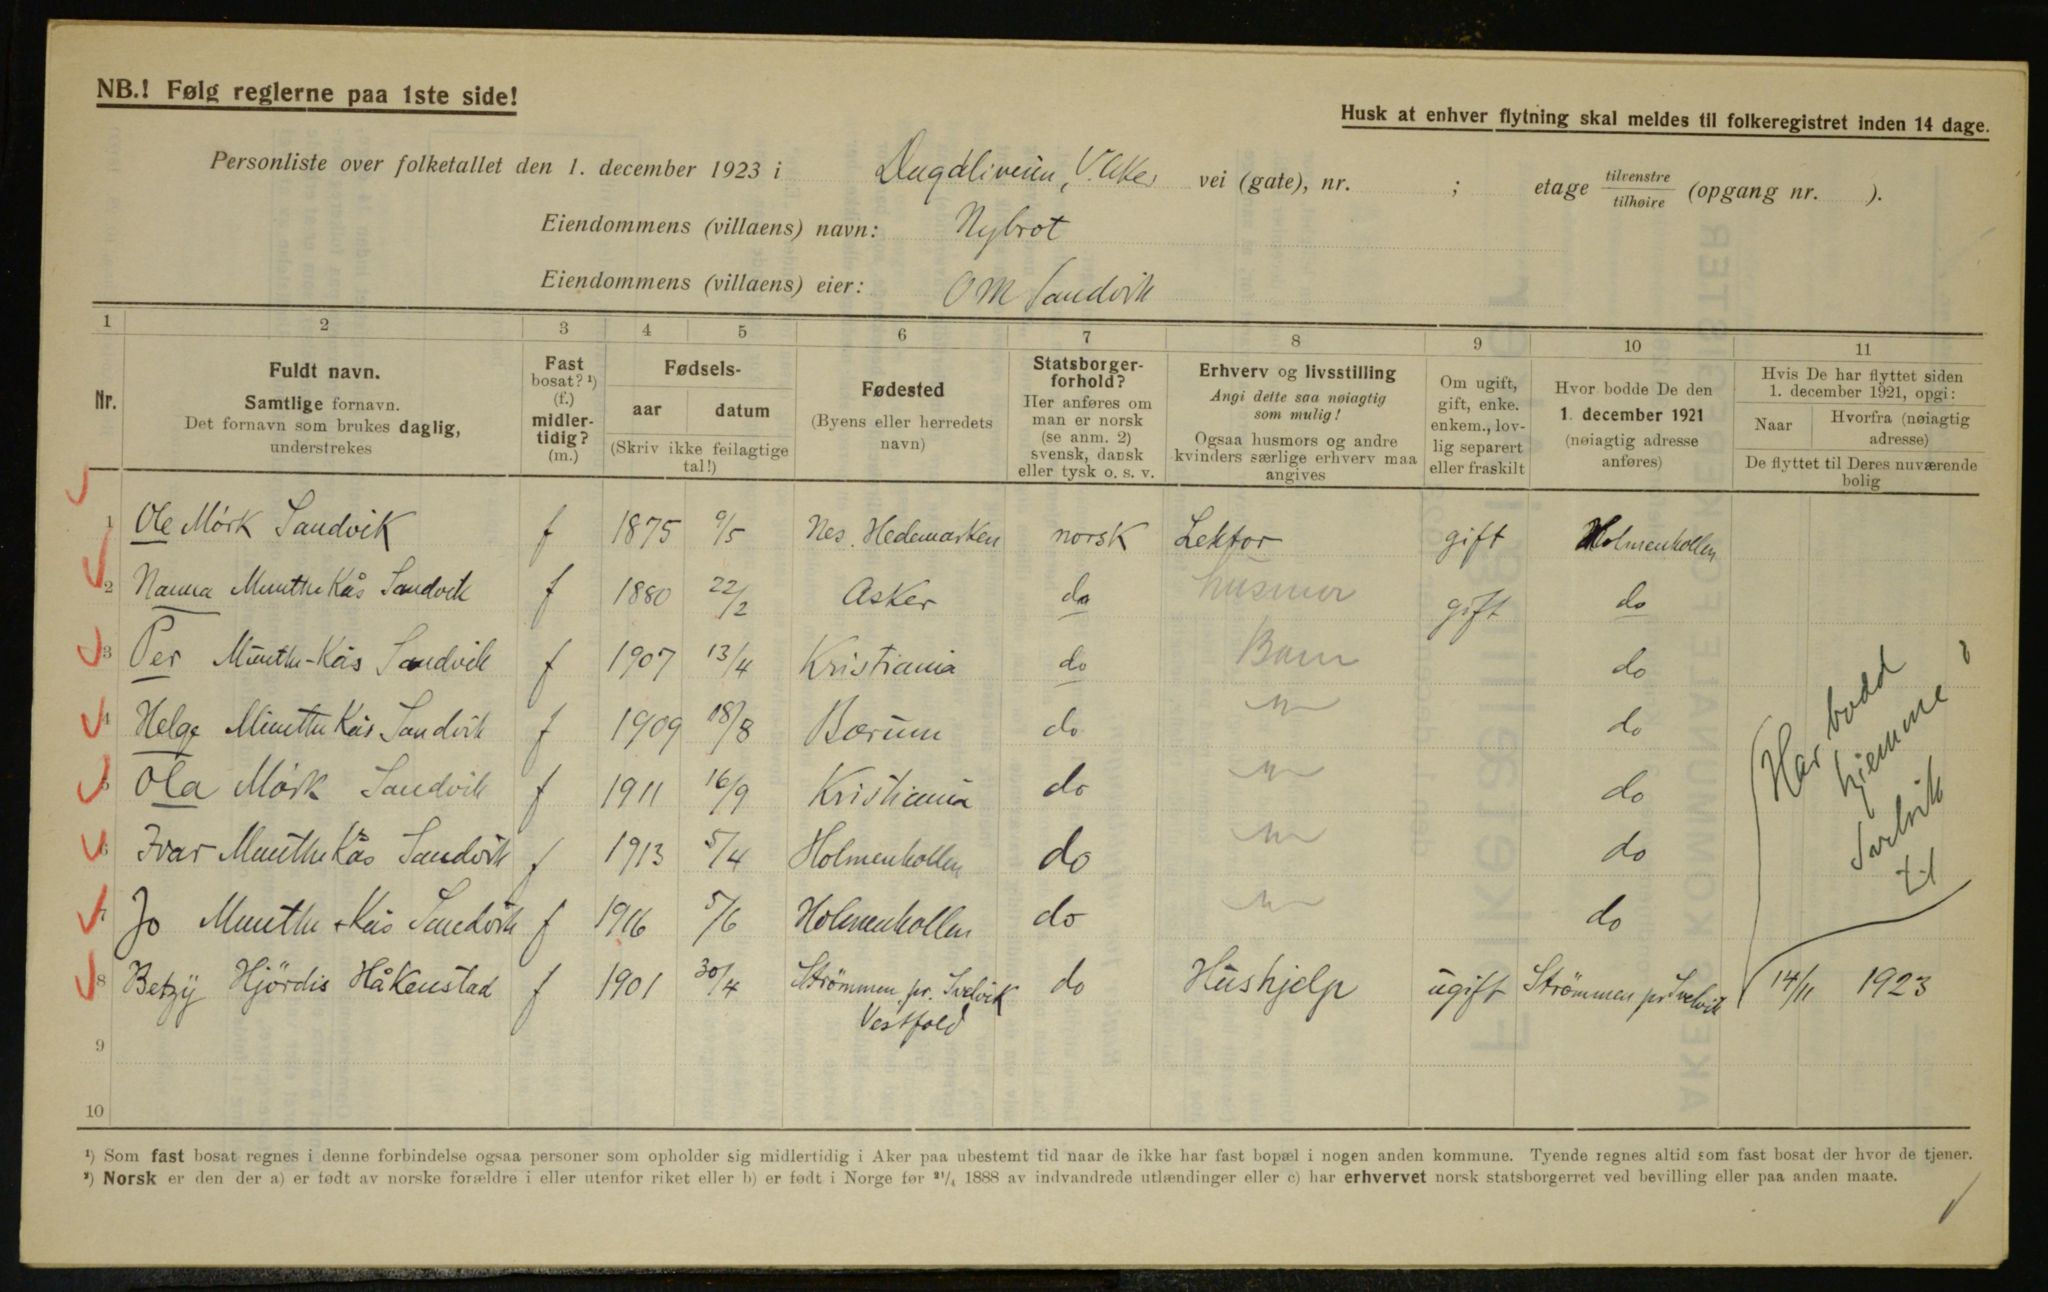 NB.! Følg reglerne paa 1ste side!
Husk at enhver flytning skal meldes til folkeregistret inden 14 dage.
Personliste over folketallet den 1. december 1923 i V. Aker vei (gate), nr. ; etage tilvenstre tilhøire (opgang nr. ).
Eiendommens (villaens) navn: Nybrot
Eiendommens (villaens) eier: O M Sandvik
1 2 3 4 5 6 7 8 9 10 11
Nr.
Fuldt navn.
Samtlige fornavn.
Det fornavn som brukes daglig,
understrekes
Fast
bosat? ¹)
(f.)
midler-
tidig?
(m.)
Fødsels-
aar datum
(Skriv ikke feilagtige
tal!)
Fødested
(Byens eller herredets
navn)
Statsborger-
forhold?
Her anføres om
man er norsk
(se anm. 2)
svensk, dansk
eller tysk o. s. v.
Erhverv og livsstilling
Angi dette saa nøiagtig
som mulig!
Ogsaa husmors og andre
kvinders særlige erhverv maa
angives
Om ugift,
gift, enke.
enkem., lov-
lig separert
eller fraskilt
Hvor bodde De den
1. december 1921
(nøiagtig adresse
anføres)
Hvis De har flyttet siden
1. december 1921, opgi:
Naar Hvorfra (nøiagtig
adresse)
De flyttet til Deres nuværende
bolig
1 Ole Mørk Sandvik f 1875 9/5 Nes. Hedemarken norsk Lektor gift Holmenkollen
2 Nanna Munthe Kås Sandvik f 1880 22/2 Asker do husmor gift do
3 Per Munthe-Kås Sandvik f 1907 13/4 Kristiania do Barn do
4 Helge Munthe Kås Sandvik f 1909 18/8 Bærum do do
5 Ola Mørk Sandvik f 1911 16/9 Kristiania do do
6 Ivar Munthe Kås Sandvik f 1913 5/4 Holmenkollen do do
7 Jo Munthe-Kås Sandvik f 1916 5/6 Holmenkollen do do
8 Betzy Hjørdis Håkenstad f 1901 30/4 Strömmen pr. Svelvik do Hushjelp ugift Strömmen pr Svelvik 14/11 1923
Vestfold
Har bodd
hjemme i
Svelvik
til
9
10
¹) Som fast bosat regnes i denne forbindelse ogsaa personer som opholder sig midlertidig i Aker paa ubestemt tid naar de ikke har fast bopæl i nogen anden kommune. Tyende regnes altid som fast bosat der hvor de tjener.
²) Norsk er den der a) er født av norske forældre i eller utenfor riket eller b) er født i Norge før 21/4 1888 av indvandrede utlændinger eller c) har erhvervet norsk statsborgerret ved bevilling eller paa anden maate.